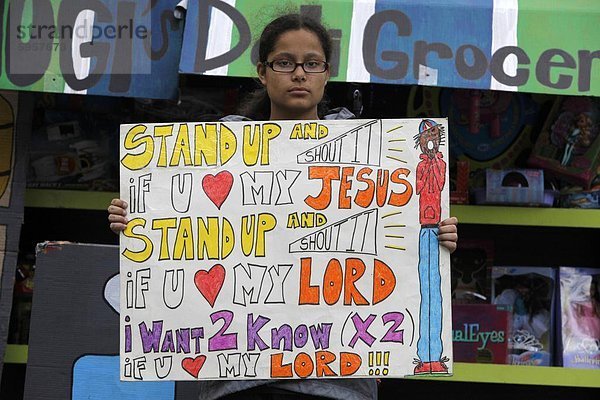 strandperle
UGI's Deli Grocer
STAND UP AND SHOUT IT
iF U ♥ MY JESUS
STAND UP AND SHOUT IT
iF U ♥ MY LORD
i WANT 2 KNOW (X2)
iF U ♥ MY LORD!!!
ual EyeS